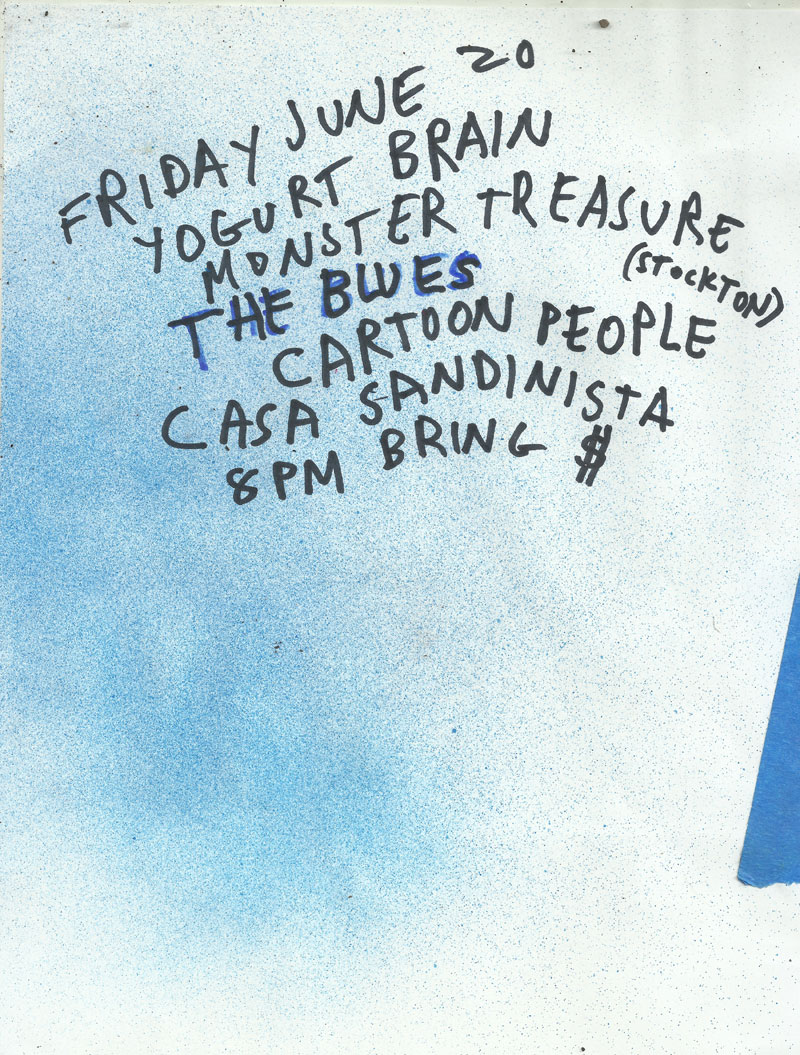 FRIDAY JUNE 20
YOGURT BRAIN
MONSTER TREASURE
(STOCKTON)
THE BLUES
CARTOON PEOPLE
CASA SANDINISTA
8PM BRING $